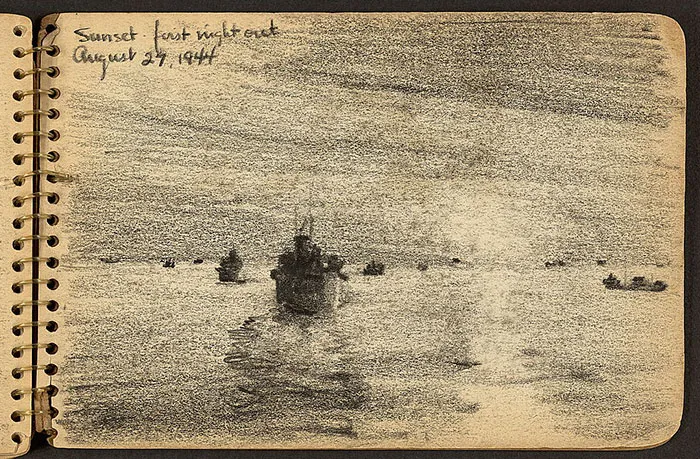 Sunset first night out
August 27, 1944